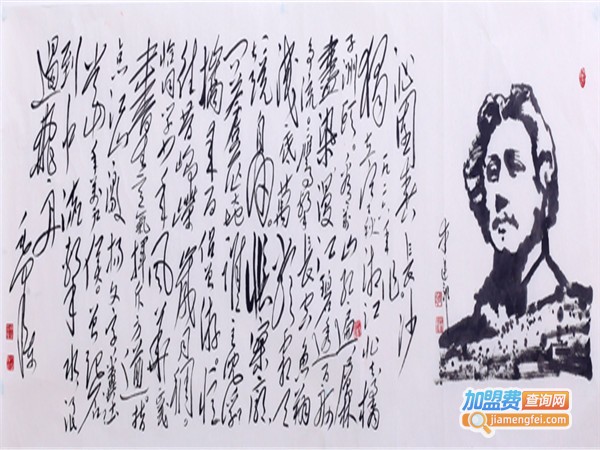 沁园春 长沙
一九二六年作
独立寒秋 湘江北去 橘
子洲頭。看万山红遍 層
林盡染 漫江碧透 百舸
争流。鹰击长空 鱼翔
浅底 萬類霜天
競自由。悵寥廓
问苍茫大地 誰主沉浮
攜来百侣曾游 忆
往昔峥嵘歲月稠
恰同学少年 风华正茂
書生意氣 揮斥方遒 指
点江山 激扬文字 粪土
当年万户侯 曾记否
到中流击水 浪
遏飛舟
毛泽东
加盟费查询网
jiamengfei.com